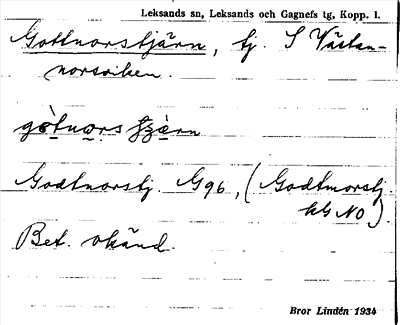 Leksands sn, Leksands och Gagnefs tg, Kopp. l.
Gottnorstjärn, tj. S Västan-
norsviken.
gòtnⱺrs
Godtnorstj. G96, (Godtmorstj.
kb NO)
Bet. okänd.
Bror Lindén 1934